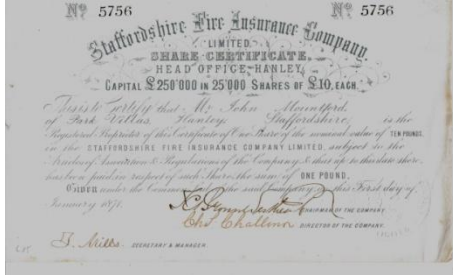 Nº 5756 Nº 5756
Staffordshire Fire Insurance Company
LIMITED.
SHARE CERTIFICATE.
HEAD OFFICE, HANLEY.
CAPITAL £250'000 IN 25'000 SHARES OF £10, EACH.
This is to Certify that Mr John Mountford
of Park Villas, Hanley, Staffordshire, is the
Registered Proprietor of this Certificate of One Share of the nominal value of TEN POUNDS,
in the STAFFORDSHIRE FIRE INSURANCE COMPANY LIMITED, subject to the
Articles of Association & Regulations of the Company, & that up to this date there
has been paid in respect of such Share the sum of ONE POUND.
GIVEN under the Common Seal of the said Company this First day of
January 1871.
CHAIRMAN OF THE COMPANY
Chs. Challinor DIRECTOR OF THE COMPANY.
Mills. SECRETARY & MANAGER.